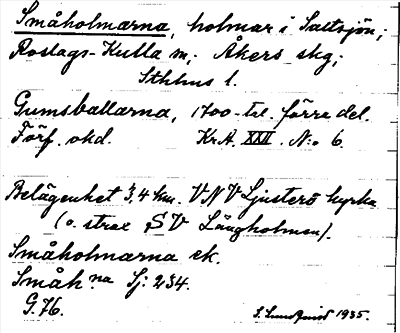 Småholmarna, holmar i Saltsjön;
Roslags-Kulla sn; Åkers skg;
Sthlms l.
Gumsballarna, 1700-tal. förra del.
Förf. okd. KrA. XXII. N:o 6.
Belägenhet 3,4 km. VNV Ljusterö kyrka
(o. strax SV Långholmen).
Småholmarna ek.
Småh.na Sj: 234.
G. 76.
S. Sundqvist 1935.